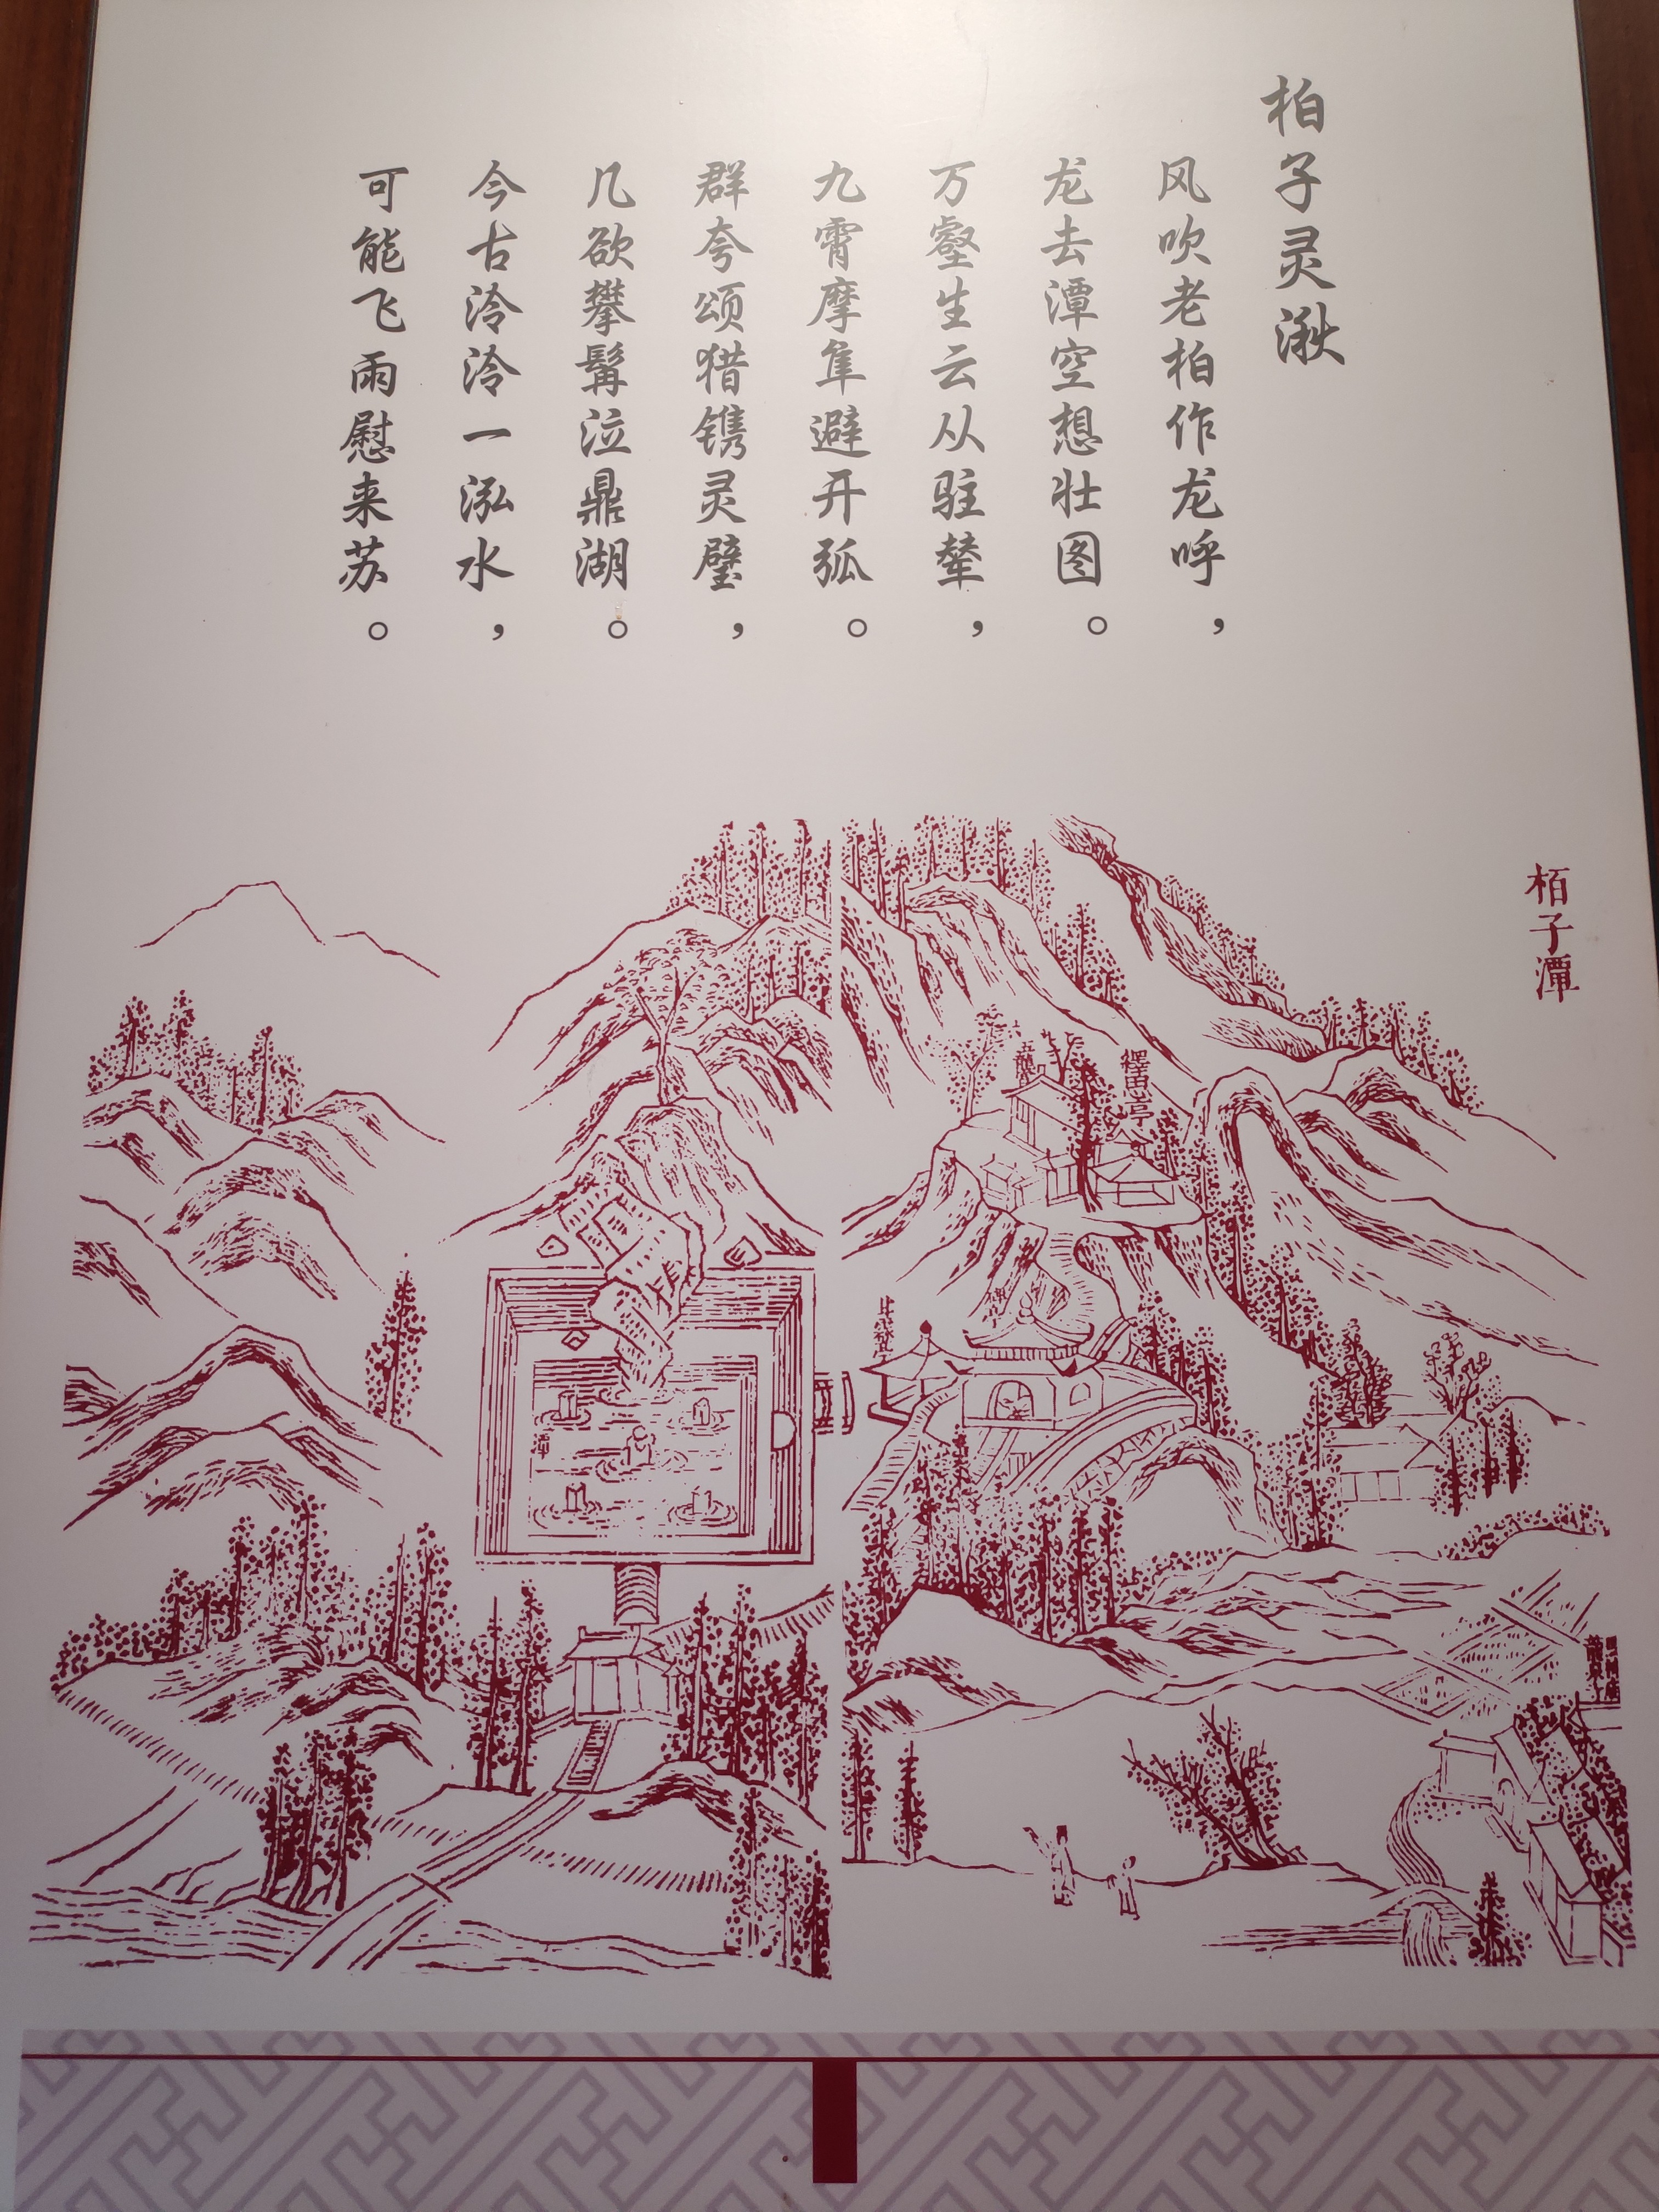 柏子灵湫
风吹老柏作龙呼，
龙去潭空想壮图。
万壑生云从驻辇，
九霄摩隼避开弧。
群夸颂猎镌灵璧，
几欲攀髯泣鼎湖。
今古泠泠一泓水，
可能飞雨慰来苏。
栢子潭
五龍
繹思亭
潭